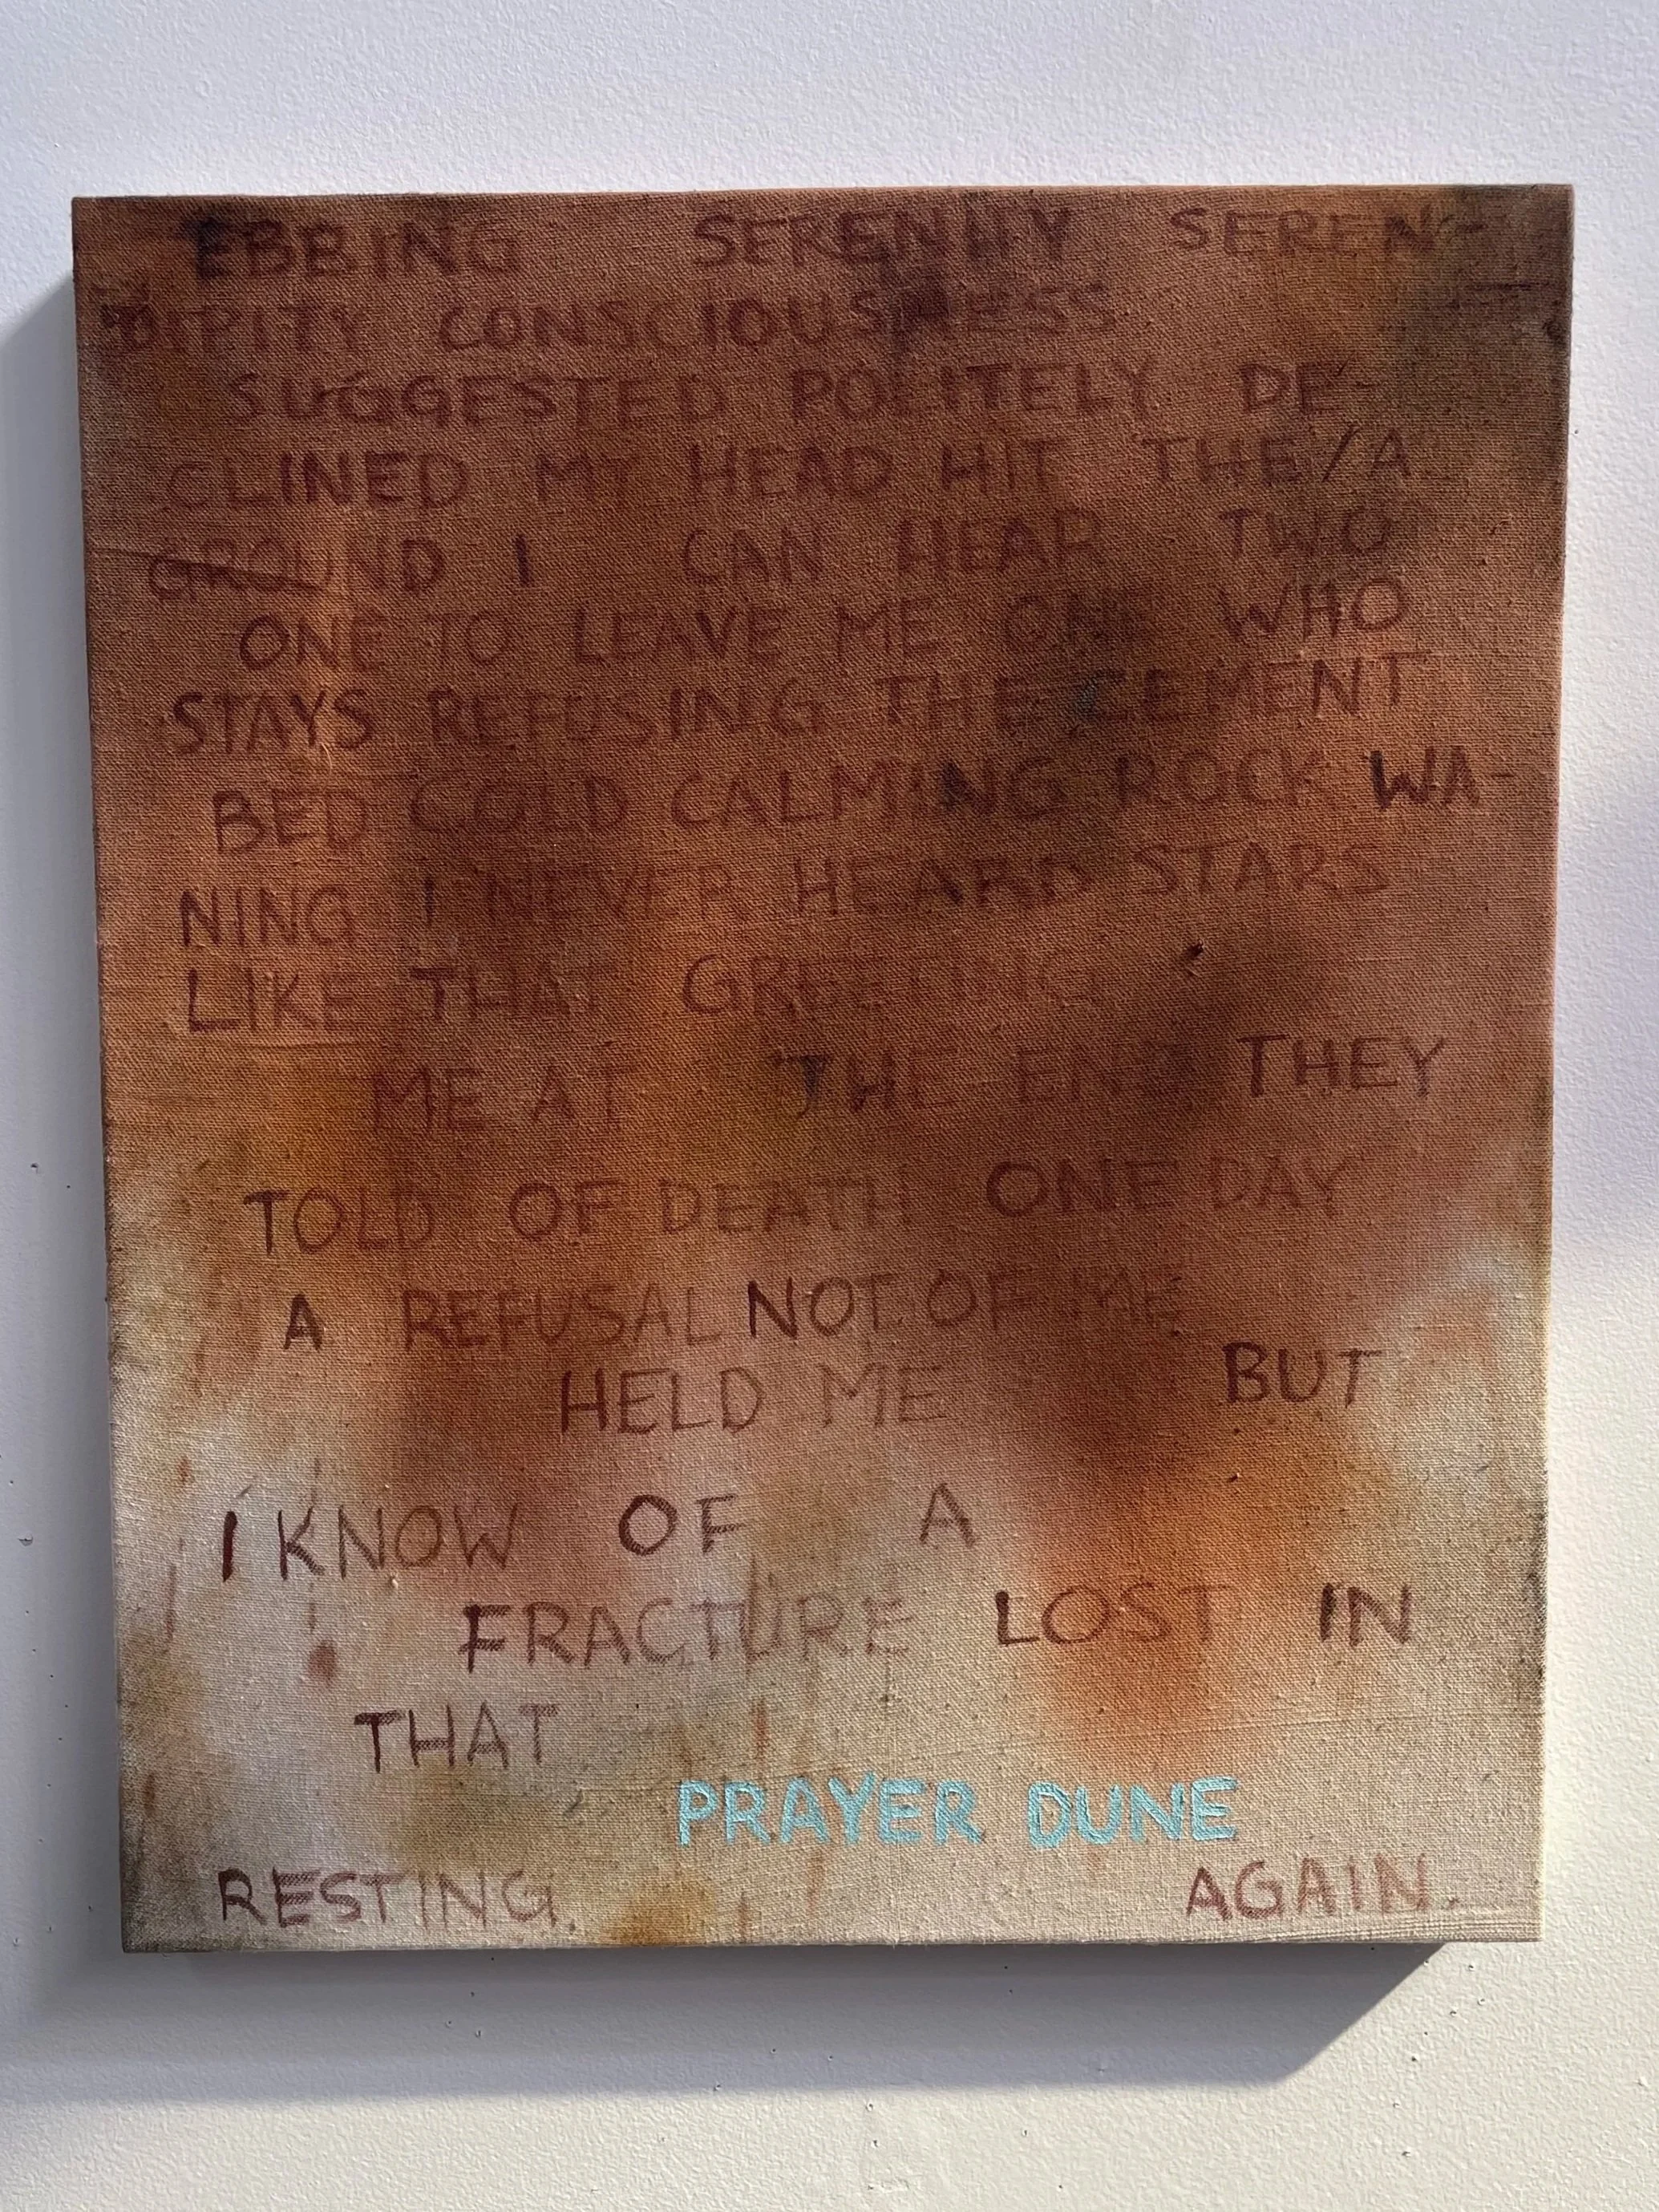 EBBING SERENITY SEREN-
DIPITY CONSCIOUSNESS
SUGGESTED POLITELY DE-
CLINED MY HEAD HIT THE/A
GROUND I CAN HEAR TWO
ONE TO LEAVE ME ONE WHO
STAYS REFUSING THE CEMENT
BED COLD CALMING ROCK WA-
NING I NEVER HEARD STARS
LIKE THAT GREETING
ME AT THE END THEY
TOLD OF DEATH ONE DAY
A REFUSAL NOT OF ME
HELD ME BUT
I KNOW OF A
FRACTURE LOST IN
THAT
PRAYER DUNE
RESTING. AGAIN.